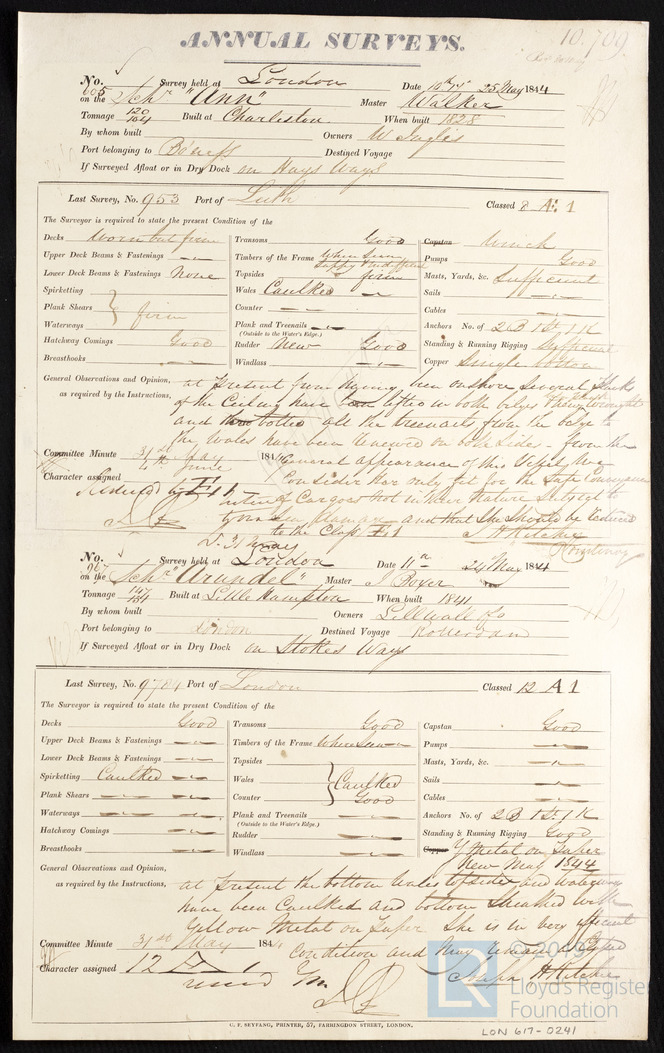 10.709
ANNUAL SURVEYS.
No. 605 Survey held at London Date 25 May 1844
on the Schr "Ann" Master Walker
Tonnage 120/104 Built at Charleston When built 1828
By whom built Owners W Inglis
Port belonging to Bo'ness Destined Voyage
If Surveyed Afloat or in Dry Dock on Hays Ways
Last Survey, No. 953 Port of Leith Classed 8 A 1
The Surveyor is required to state the present Condition of the
Decks Worn but firm
Upper Deck Beams & Fastenings
Lower Deck Beams & Fastenings None
Spirketting
Plank Shears
Waterways firm
Hatchway Comings Good
Breasthooks
Transoms Good
Timbers of the Frame When Seen
Topsides firm
Wales Caulked
Counter
Plank and Treenails
(Outside to the Water's Edge.)
Rudder New Good
Windlass
Capstan Winch
Pumps Good
Masts, Yards, &c. Sufficient
Sails
Cables
Anchors No. of 2 B 1 St. 1 K
Standing & Running Rigging Sufficient
Copper Single bottom
General Observations and Opinion, at Present from having been onshore several Planks
as required by the Instructions, of the Ceiling have been lifted in both bilges
and bolted all the treenails from the bilge to
the Wales have been renewed on both Sides - from the
Committee Minute 31st May 1844 General appearance of this Vessel We
4th June
Character assigned Consider her only fit for the Safe Conveyance
of Cargoes not in their Nature Subject to
Sea Damage and that She Should be Reduced
to the Class Æ 1
J H Ritchie
No. 967 Survey held at London Date 11th 24 May 1844
on the Schr "Arundel" Master J Boyer
Tonnage 147/134 Built at Little Hampton When built 1841
By whom built Owners Sellwall & Co
Port belonging to London Destined Voyage Rotterdam
If Surveyed Afloat or in Dry Dock on Stokes Ways
Last Survey, No. 9784 Port of London Classed 12 A 1
The Surveyor is required to state the present Condition of the
Decks Good
Upper Deck Beams & Fastenings
Lower Deck Beams & Fastenings
Spirketting Caulked
Plank Shears
Waterways
Hatchway Comings
Breasthooks
Transoms Good
Timbers of the Frame Where Seen
Topsides
Wales Caulked
Counter Good
Plank and Treenails
(Outside to the Water's Edge.)
Rudder
Windlass
Capstan Good
Pumps
Masts, Yards, &c.
Sails
Cables
Anchors No. of 2 B 1 St. 1 K
Standing & Running Rigging Good
Copper Y Metal on Super
New May 1844
General Observations and Opinion, at Present the bottom Wales topsides and waterways
as required by the Instructions, have been Caulked and bottom Sheathed with
Yellow Metal on Super She is in very efficient
Committee Minute 31st May 1844 condition and May Remain as Classed
Character assigned 12 A 1
Joseph H Ritchie
C. F. SEYFANG, PRINTER, 57, FARRINGDON STREET, LONDON.
LON 617-0241
© 2019
LR
Lloyd's Register
Foundation